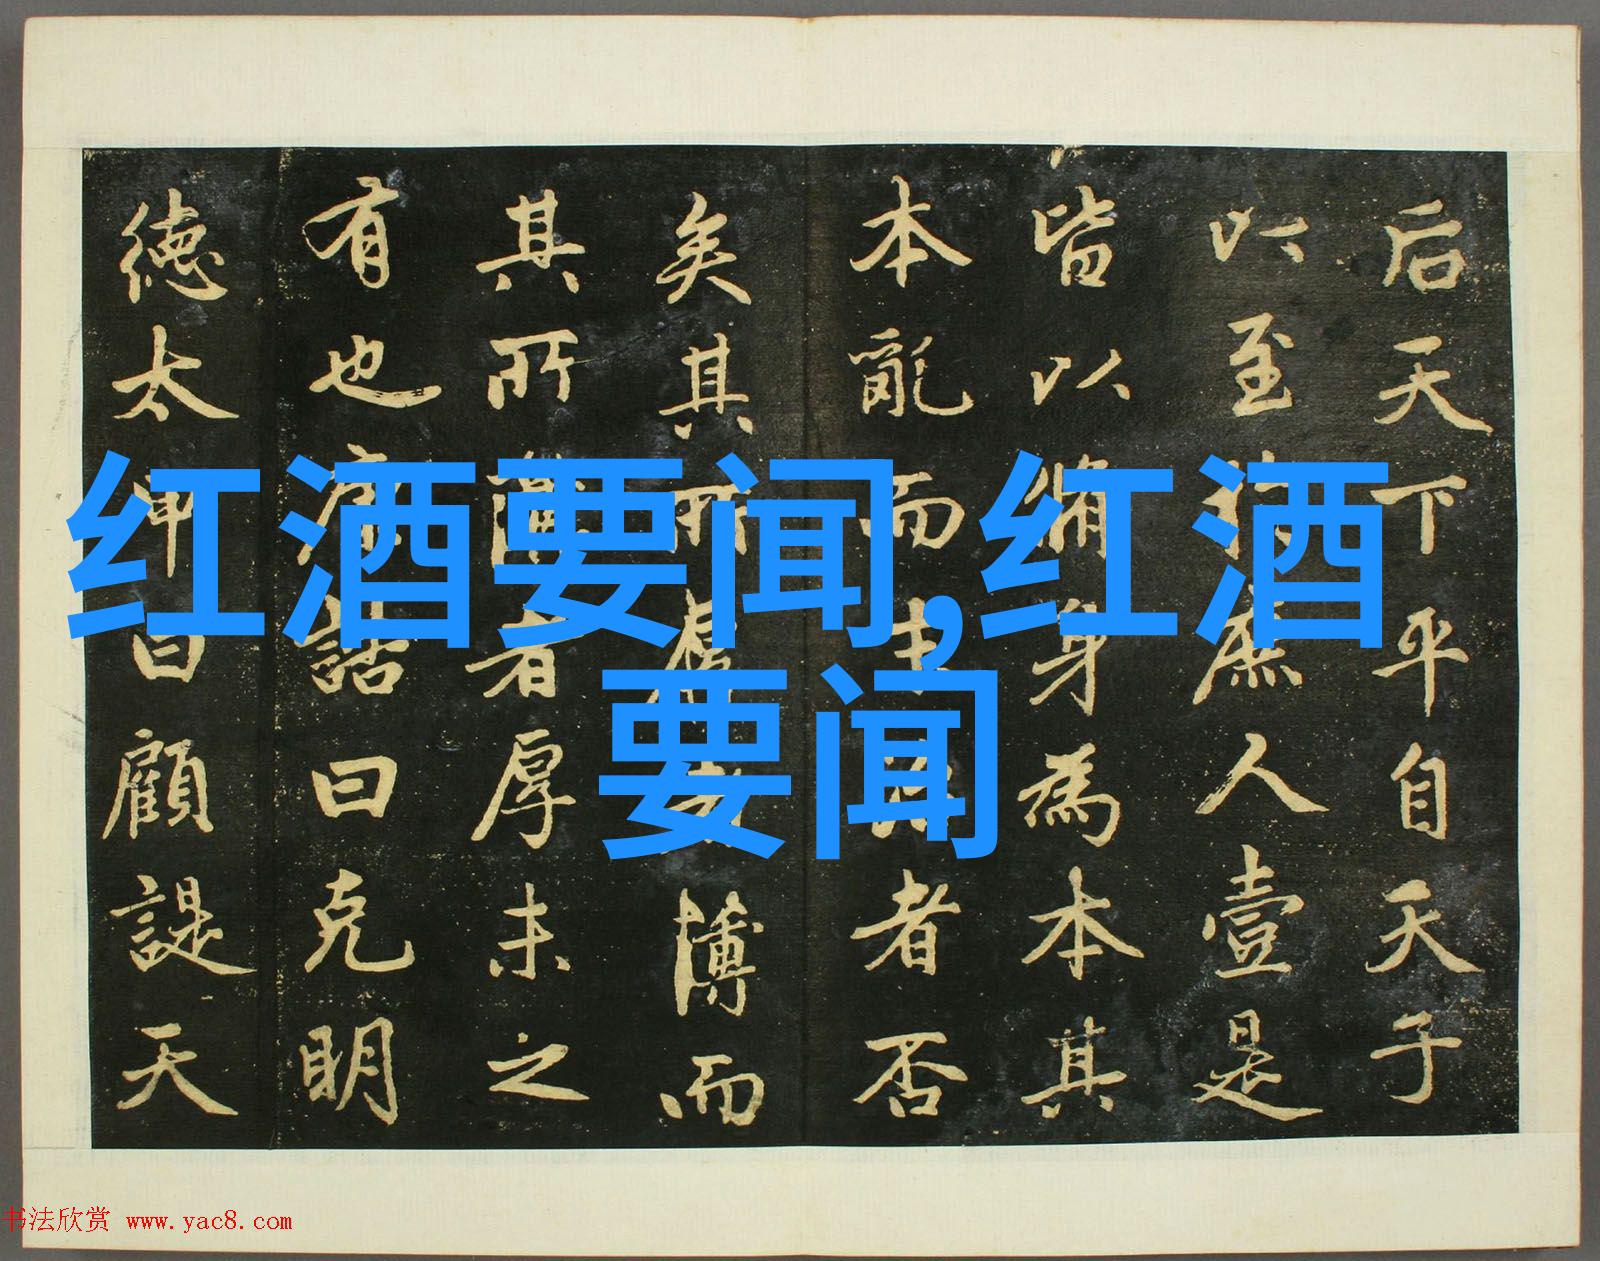 红酒要闻,红酒
要闻
后天下平自天子
以至於庶人壹是
皆以脩身為本其
本亂而末治者否
矣其所厚者薄而
其所薄者厚未之
有也康誥曰克明
德太甲曰顧諟天
书法欣赏 www.yac8.com